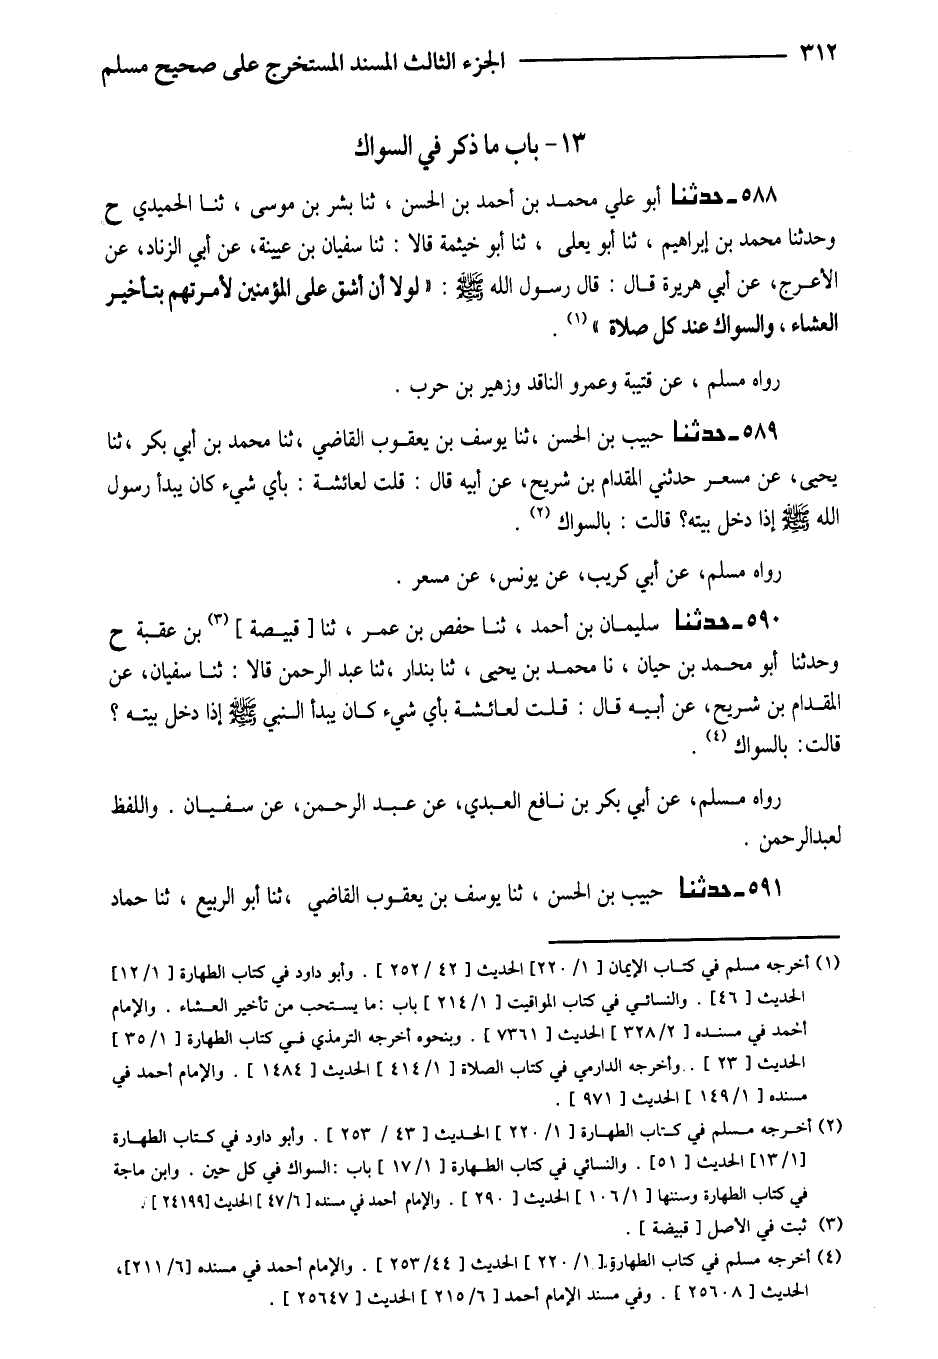 ٣١٢ ـــــــــــــــــ الجزء الثالث المسند المستخرج على صحيح مسلم
١٣- باب ما ذكر في السواك
٥٨٨ـ حدثنا أبو علي محمـد بن أحمد بن الحسن ، ثنا بشر بن موسى ، ثنـا الحميدي ح
وحدثنا محمد بن إبراهيم ، ثنا أبو يعلى ، ثنا أبو خيثمة قالا : ثنا سفيان بن عيينة، عن أبي الزناد، عن
الأعـرج، عن أبي هريرة قـال : قال رسـول الله ﷺ : « لولا أن أشق على المؤمنين لأمرتهم بتـأخير
العشاء ، والسواك عند كل صلاة » (١) .
رواه مسلم ، عن قتيبة وعمرو الناقد وزهير بن حرب .
٥٨٩ـ حدثنا حبيب بن الحسن ،ثنا يوسف بن يعقـوب القاضي ،ثنا محمد بن أبي بكر ،ثنا
يحيى، عن مسعـر حدثني المقدام بن شريح، عن أبيه قال : قلت لعائشـة : بأي شيء كان يبدأ رسول
الله ﷺ إذا دخل بيته؟ قالت : بالسواك (٢) .
رواه مسلم، عن أبي كريب، عن يونس، عن مسعر .
٥٩٠ـ حدثنا سليمـان بن أحمد ، ثنـا حفص بن عمـر ، ثنا [ قبيـصة ] (٣) بن عقـبة ح
وحدثنا أبو محـمد بن حيان ، نا محمـد بن يحيى ، ثنا بندار ،ثنا عبد الرحمن قالا : ثنـا سفيان، عن
المقـدام بن شـريح، عن أبـيه قـال : قـلت لعائشـة بأي شيء كـان يبدأ الـنبي ﷺ إذا دخل بيتـه ؟
قالت: بالسواك (٤) .
رواه مـسلم، عن أبي بكر بن نـافع العـبدي، عن عـبـد الرحـمن، عن سـفـيـان . واللفظ
لعبدالرحمن .
٥٩١ـ حدثنا حبيب بن الحسن ، ثنا يوسف بن يعقـوب القاضي ،ثنا أبو الربيع ، ثنا حماد
(١) أخرجه مسلم في كتـاب الإيمان [ ١/ ٢٢٠] الحديث [ ٤٢ / ٢٥٢ ] . وأبو داود في كتاب الطهارة [ ١/ ١٢]
الحديث [ ٤٦] . والنسائـي في كتاب المواقيت [ ١/ ٢١٤ ] باب :ما يستحب من تأخير العشاء . والإمام
أحمد في مسنـده [ ٢/ ٣٢٨ ] الحديث [ ٧٣٦١ ] . وبنحوه أخرجه الترمذي فـي كتاب الطهارة [ ١/ ٣٥ ]
الحديث [ ٢٣ ] . .وأخرجه الدارمي في كتاب الصلاة [ ١/ ٤١٤ ] الحديث [ ١٤٨٤ ] . والإمام أحمد في
مسنده [ ١/ ١٤٩ ] الحديث [ ٩٧١ ] .
(٢) أخـرجه مـسلم في كـتاب الطهارة [ ١/ ٢٢٠ ] الحـديث [ ٤٣ / ٢٥٣ ] . وأبو داود في كـتاب الطهـارة
[١/ ١٣] الحديث [ ٥١] . والنسائي في كتاب الطـهارة [ ١/ ١٧ ] باب :السواك في كل حين . وابن ماجة
في كتاب الطهارة وسننها [ ١/ ١٠٦ ] الحديث [ ٢٩٠ ] . والإمام أحمد في مسنده [ ٦/ ٤٧ ] الحديث [٢٤١٩٩ ] .
(٣) ثبت في الأصل [ قبيضة ] .
(٤) أخرجه مسلم في كتاب الطهارة [ ١/ ٢٢٠ ] الحديث [ ٤٤/ ٢٥٣ ] . والإمام أحمد في مسنده [٦/ ٢١١]،
الحديث [ ٢٥٦٠٨ ] . وفي مسند الإمام أحمد [ ٦/ ٢١٥ ] الحديث [ ٢٥٦٤٧ ] .